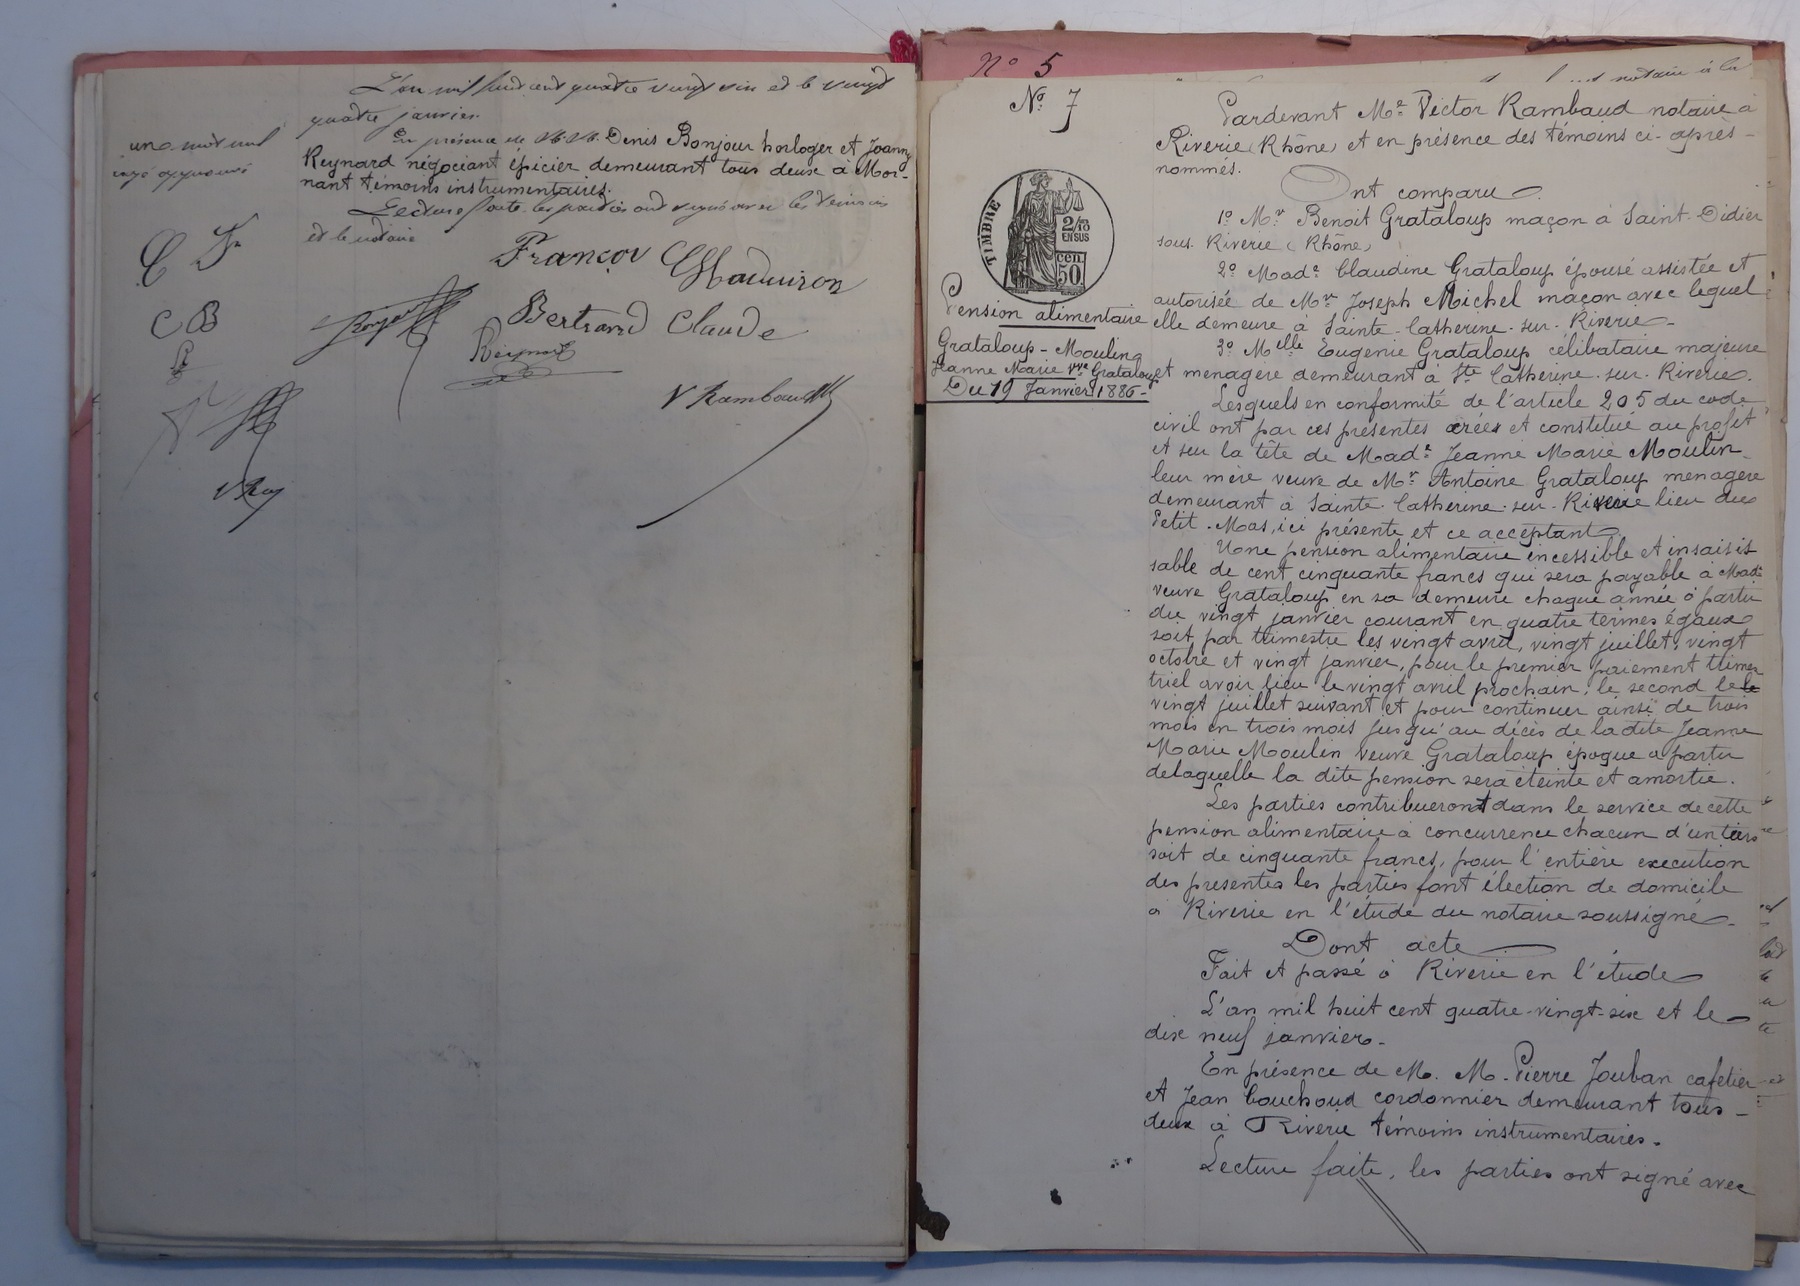 L'an mil huit cent quatre vingt six et le vingt
quatre janvier.
En présence de M.M. Denis Bonjour horloger et Joanny
Reynard négociant épicier demeurant tous deux à Mor-
nant témoins instrumentaires.
Lecture faite, les parties ont signé avec les témoins
et le notaire
un mot nul
rayé approuvé
François
Bertrand Claude
Reynard
V Rambaud
C B
N° 5
notaire à la
N° 7
TIMBRE
2/10
EN SUS
CEN.
50.
Pension alimentaire
Grataloup - Moulin a
Jeanne Marie vve Grataloup
Du 19 Janvier 1886 -
Pardevant Me Victor Rambaud notaire à
Riverie (Rhône) et en présence des témoins ci-après -
nommés.
Ont comparu
1º Mr Benoit Grataloup maçon à Saint-Didier
sous Riverie (Rhône)
2º Made Claudine Grataloup épouse assistée et
autorisée de Mr Joseph Michel maçon avec lequel
elle demeure à Sainte-Catherine-sur-Riverie -
3º Melle Eugénie Grataloup célibataire majeure
et ménagère demeurant à Ste Catherine-sur-Riverie.
Lesquels en conformité de l'article 205 du code
civil ont par ces présentes créer et constitué au profit
et sur la tête de Made Jeanne Marie Moulin
leur mère veuve de Mr Antoine Grataloup menagère
demeurant à Sainte-Catherine-sur-Riverie lieu du
Petit-Mas, ici présente et ce acceptant
Une pension alimentaire incessible et insaisis
sable de cent cinquante francs qui sera payable à Made
veuve Grataloup en sa demeure chaque année à partir
du vingt janvier courant en quatre termes égaux
soit par trimestre les vingt avril, vingt juillet, vingt
octobre et vingt janvier, pour le premier paiement trimes
triel avoir lieu le vingt avril prochain, le second le le
vingt juillet suivant et pour continuer ainsi de trois
mois en trois mois jusqu'au décès de la dite Jeanne
Marie Moulin veuve Grataloup époque à partir
delaquelle la dite pension sera éteinte et amortie.
Les parties contribueront dans le service de cette
pension alimentaire à concurrence chacun d'un tiers
soit de cinquante francs, pour l'entière execution
des presentes les parties font élection de domicile
à Riverie en l'étude du notaire soussigné -
Dont acte
Fait et passé à Riverie en l'étude
L'an mil huit cent quatre-vingt-six et le
dix neuf janvier -
En présence de M. M. Pierre Jouban cafetier
et Jean Couchoud cordonnier demeurant tous -
deux à Riverie témoins instrumentaires.
Lecture faite, les parties ont signé avec